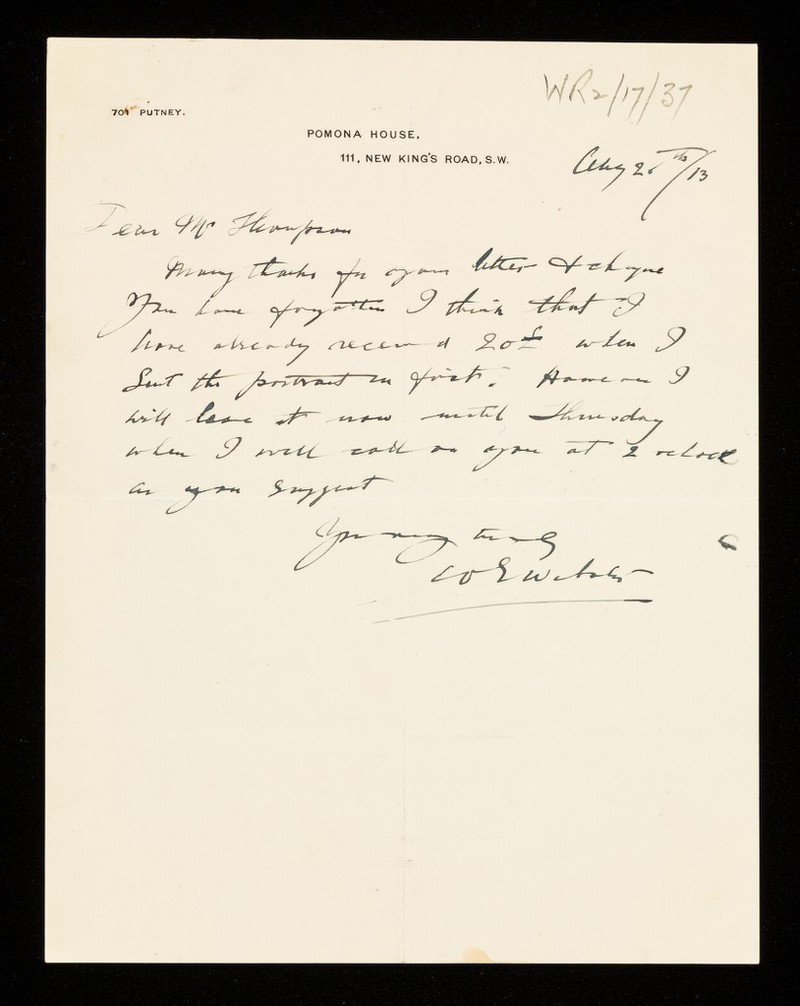 WR2/17/37
701 PUTNEY.
POMONA HOUSE,
111, NEW KING'S ROAD, S.W.
Aug 26th/13
Dear Mr Thompson
Many thanks for your letter & cheque
You have forgotten I think that I
have already received 20£ when I
Sent the portrait in first. However I
will leave it now until Thursday
when I will call on you at 2 oclock
as you suggest
Yours very truly
W E Webster